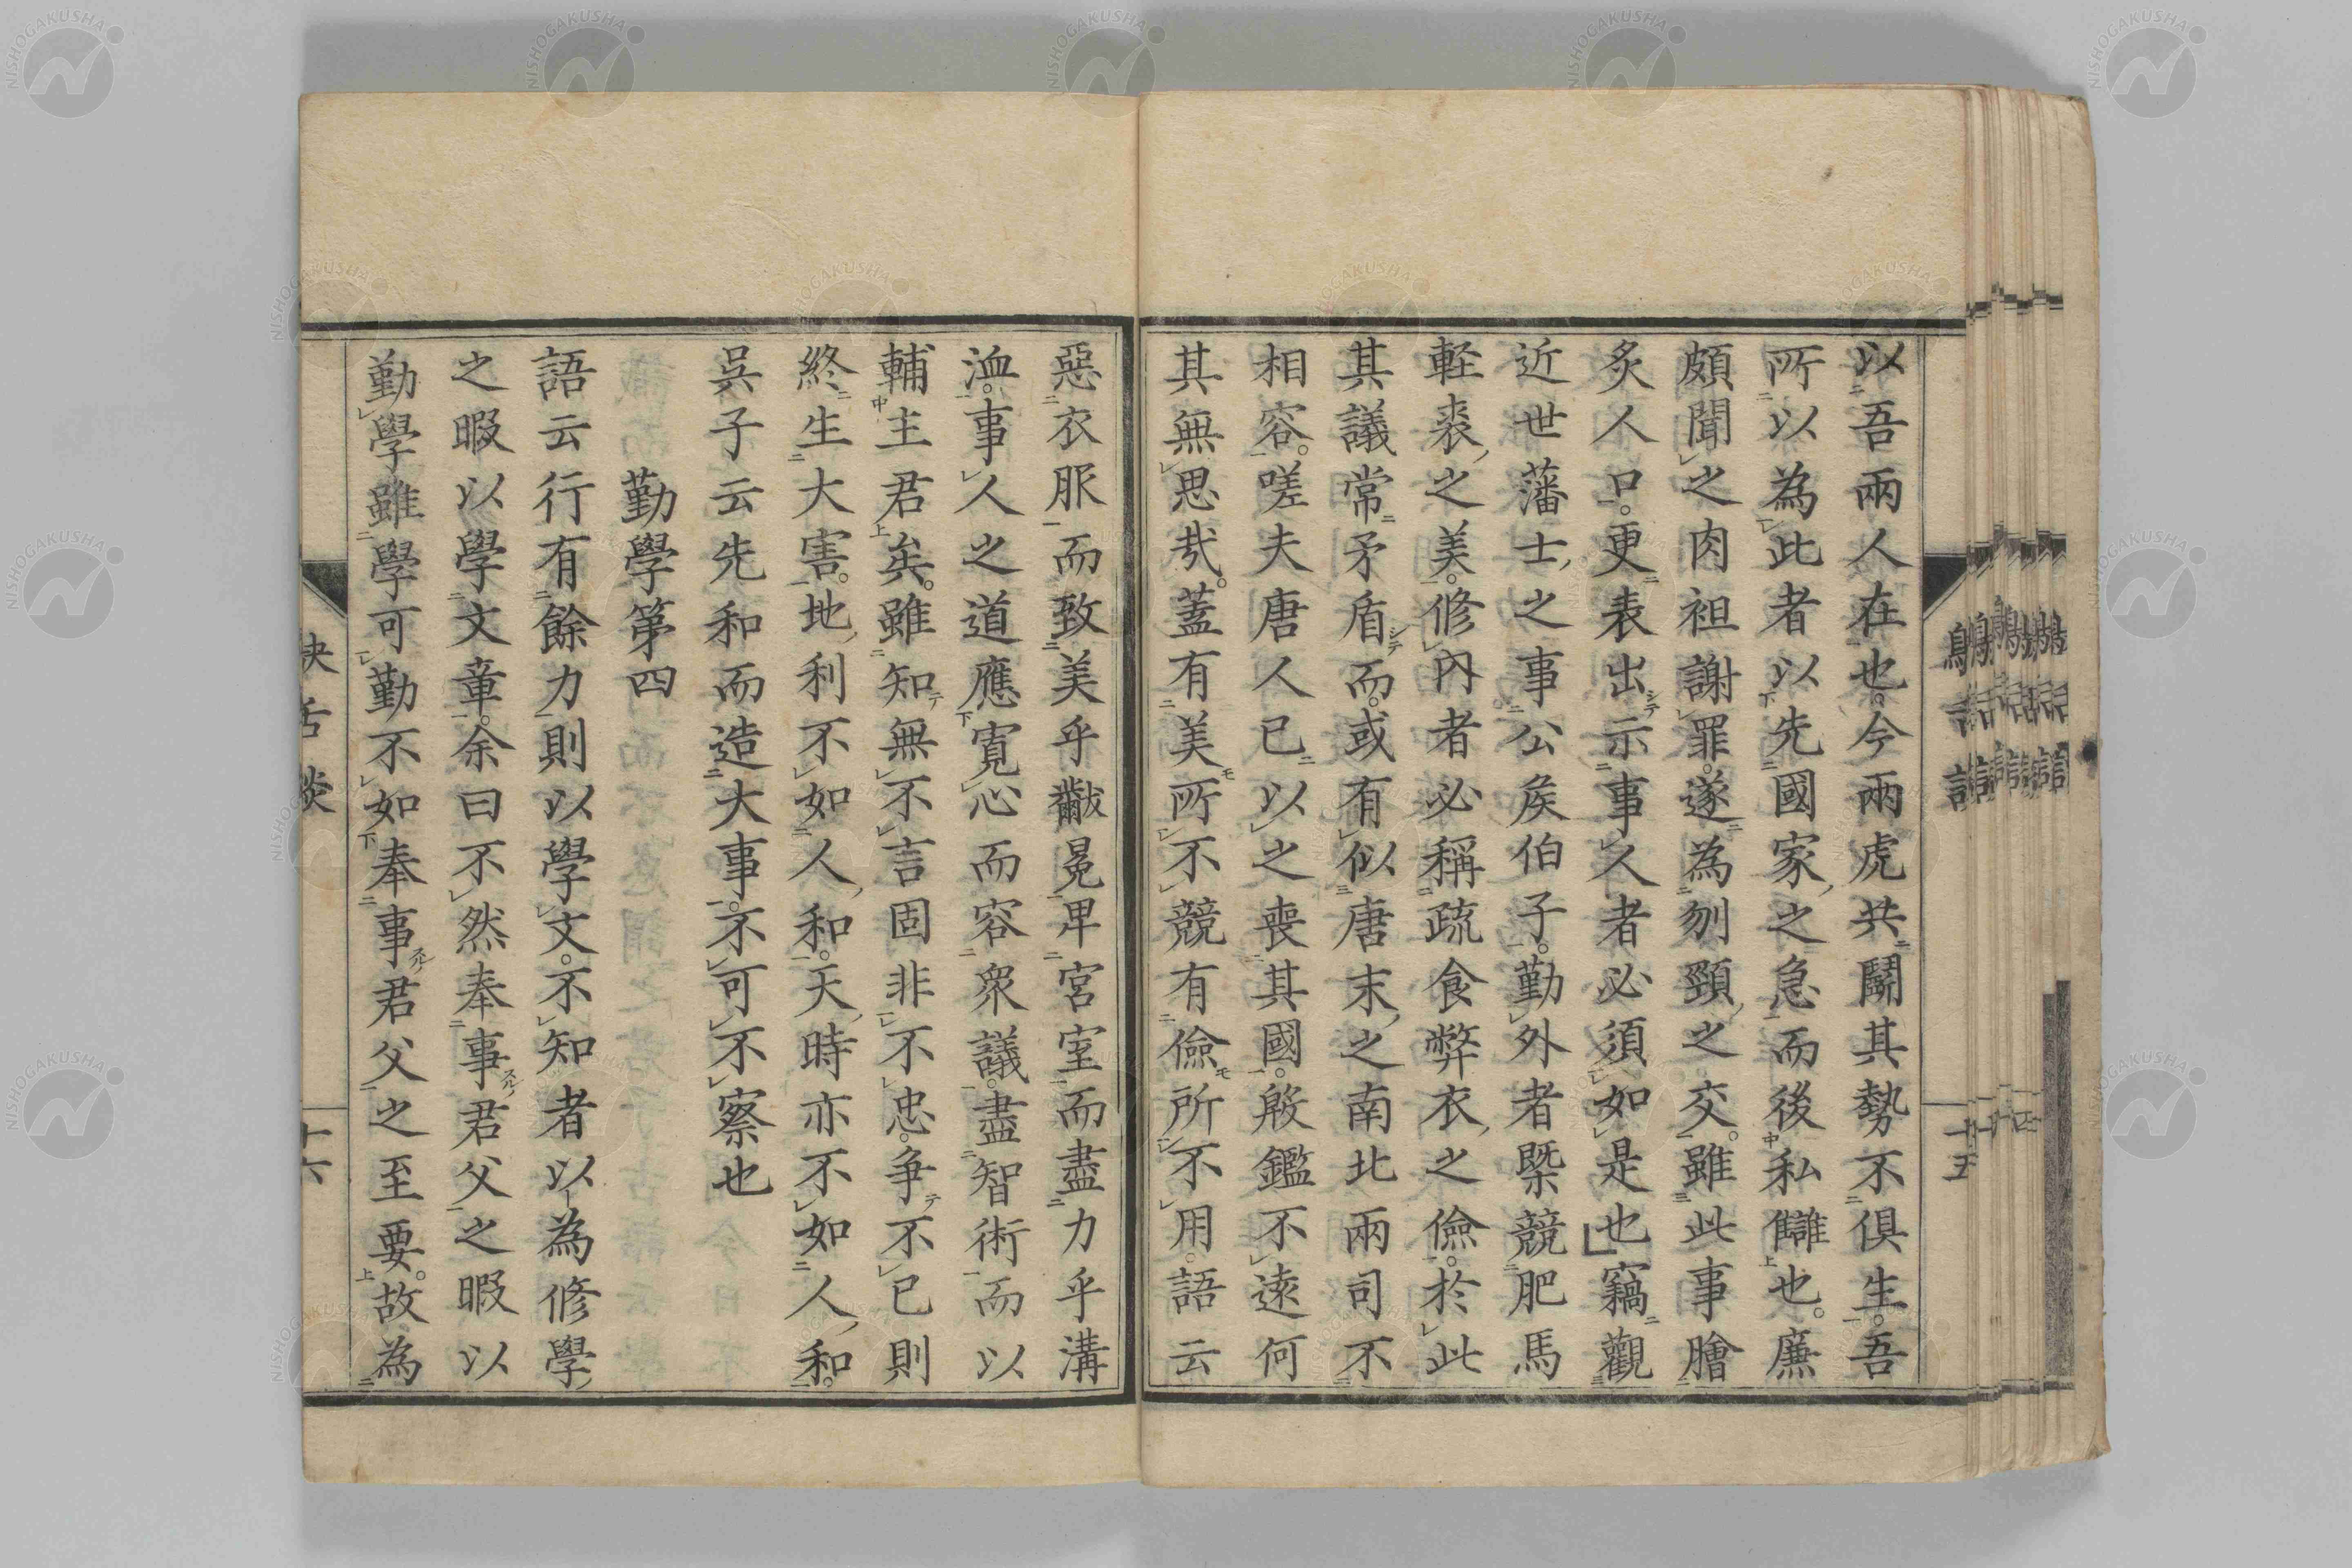 以吾兩人在也。今兩虎共鬬其勢不俱生。吾
所以為此者以先國家之急而後私讎也。廉
頗聞之肉袒謝罪。遂為刎頸之交。雖此事膾
炙人口。更表出示事人者必須如是也」竊觀
近世藩士之事公矦伯子。勤外者槩競肥馬
軽裘之美。修內者必稱疏食弊衣之儉。於此
其議常矛盾而。或有似唐末之南北兩司不
相容。嗟夫唐人已以之喪其國。殷鑑不遠何
其無思哉。蓋有美所不競有儉所不用。語云
惡衣服而致美乎黻冕卑宮室而盡力乎溝
洫。事人之道應寬心而容衆議。盡智術而以
輔主君矣。雖知無不言固非不忠。争不已則
終生大害。地利不如人和。天時亦不如人和。
吳子云先和而造大事。不可不察也
勤學第四
語云行有餘力則以學文。不知者以為修學
之暇以學文章。余曰不然奉事君父之暇以
勤學雖學可勤不如奉事君父之至要。故為
十六
十五
NISHOGAKUSHA